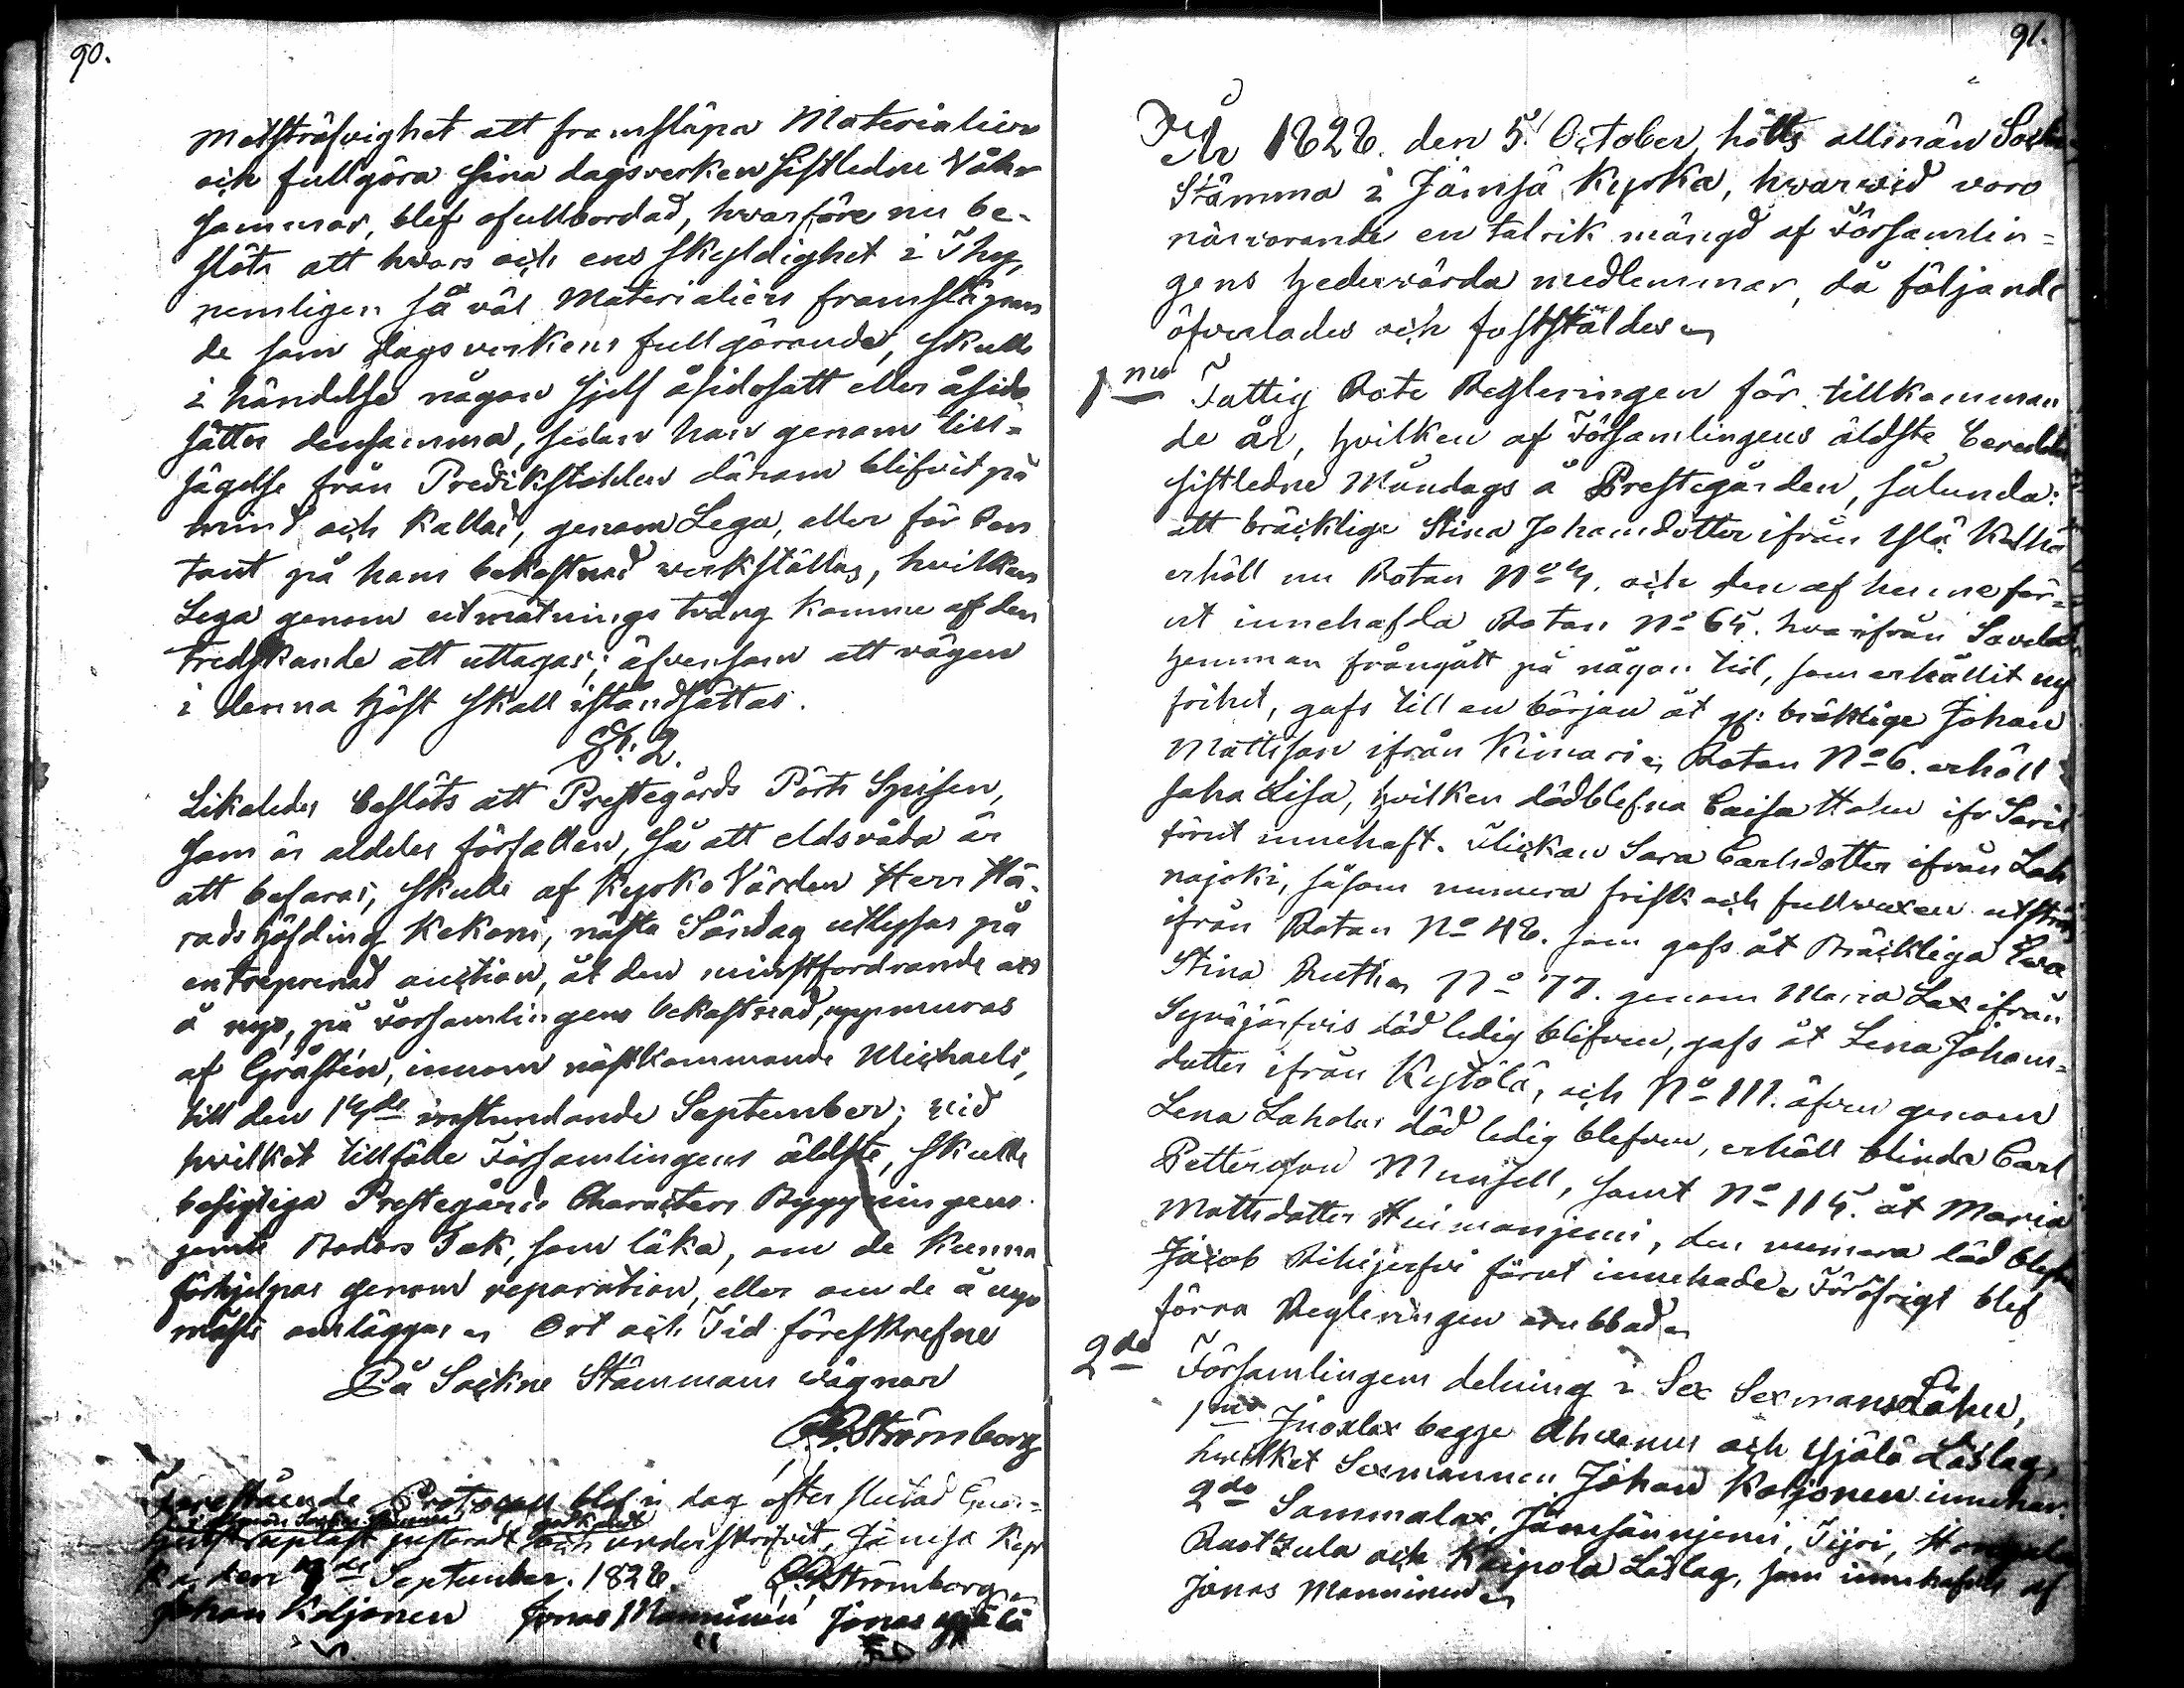 90.
Motsträfvighet att framsläpa Materialier
och fullgöra sina dagsverken sistledne Vår
sommar, blef ofullbordad, hvarföre nu be-
slöts att hvars och ens skyldighet i Thy,
nemligen så väl Materialiers framsläpan
de som dagsverkens fullgörande, skulle
i händelse någon sjelf åsidosatt eller åsido
sätter densamma, sedan han genom till-
sägelse från Predikstolen därom blifvit på
mind och kallad, genom Lega, eller för Con
tant på hans bekostnad werkställas, hvilken
Lega genom utmätnings tvång komme af den
tredskande att uttagas; äfvensom att vägen
i denna Höst skall iståndsättas.
§: 2.
Likaledes beslöts att Prestegårds Pörts Spisen,
som är aldeles förfallen, så att eldsvåda är
att befaras, skulle af Kyrko Värden Herr Hä-
radshöfding Kekoni, nästa Söndag utlysas på
entreprenad auction, åt den minstfordrande att
å nyo, på Församlingens bekostnad, uppmuras
af Gråsten, innom nästkommande Michaeli,
till den 14de instundande September; vid
hvilket tillfälle Församlingens äldste, skulle
besigtiga Prestegårds Characters Byggningens
jemte Boders Tak, som läka, om de kunna
förhjelpas genom reparation, eller om de å nyo
måste omläggas. Ort och Tid föreskrefne
På Sockne Stämmans vägnar
Strömborg
Förestående Protocoll blef i dag efter slutad Guds-
tjenst upläst justeradt godkändt och underskrifvit, Jämsä Kyr
ka den 7de September 1828. Strömborg
Johan Koljonen Jonas Manninen Jonas Yjälä
91.
År 1828. den 5. October, hölts allmän Sockne
Stämma i Jämsä Kyrka, hvarwid voro
närvarande en talrik mängd af Församlin-
gens hedervärda medlemmar, då följande
öfverlades och fastställdes
1mo Fattig Rote Regleringen för tillkomman
de år, hvilken af Församlingens äldste bereddes
sistledne Måndags å Prestegården, sålunda:
att bräcklige Stina Johansdotter ifrån Ylä
erhöll nu Rotan No 4. och den af henne för-
ut innehafda Rotan No 64. hvarifrån
Hemman frångått på någon tid, som erhållit ny
frihet, gafs till en början åt bräcklige Johan
Mattsson ifrån Kimari, Rotan No 6. erhöll
Lisa, hvilken dödblefna Caisa Holm
förut innehaft. Flickan Sara Carlsdotter ifrån
najoki, såsom numera frisk och fullvuxen
ifrån Rotan No 48. som gafs åt Bräckliga Ewa
Stina Ruth No 77. genom Maria Lax ifrån
Syväjärfvis död ledig blifven, gafs åt Lena Johans-
dotter ifrån Kytölä, och No 111. äfven genom
Lena Laholas död ledig blefven, erhöll blinde Carl
Petterson Munsell, samt No 114. åt Maria
Mattsdotter Huimanjemi, den numera död blefne
Jacob Rihijerfvi förut innehade. Föröfrigt blef
förra Regleringen orubbad
2do Församlingens delning i Sex SexmansLähn,
1mo Juoxlax begge Ahvenus och Yjälä Låslag,
hvilket Sexmannen Johan Koljonen innehar.
2do Sammalax, Jämsänniemi, Tijri,
Rutzula och Kaipola Låslag, som innehafves af
Jonas Manninen